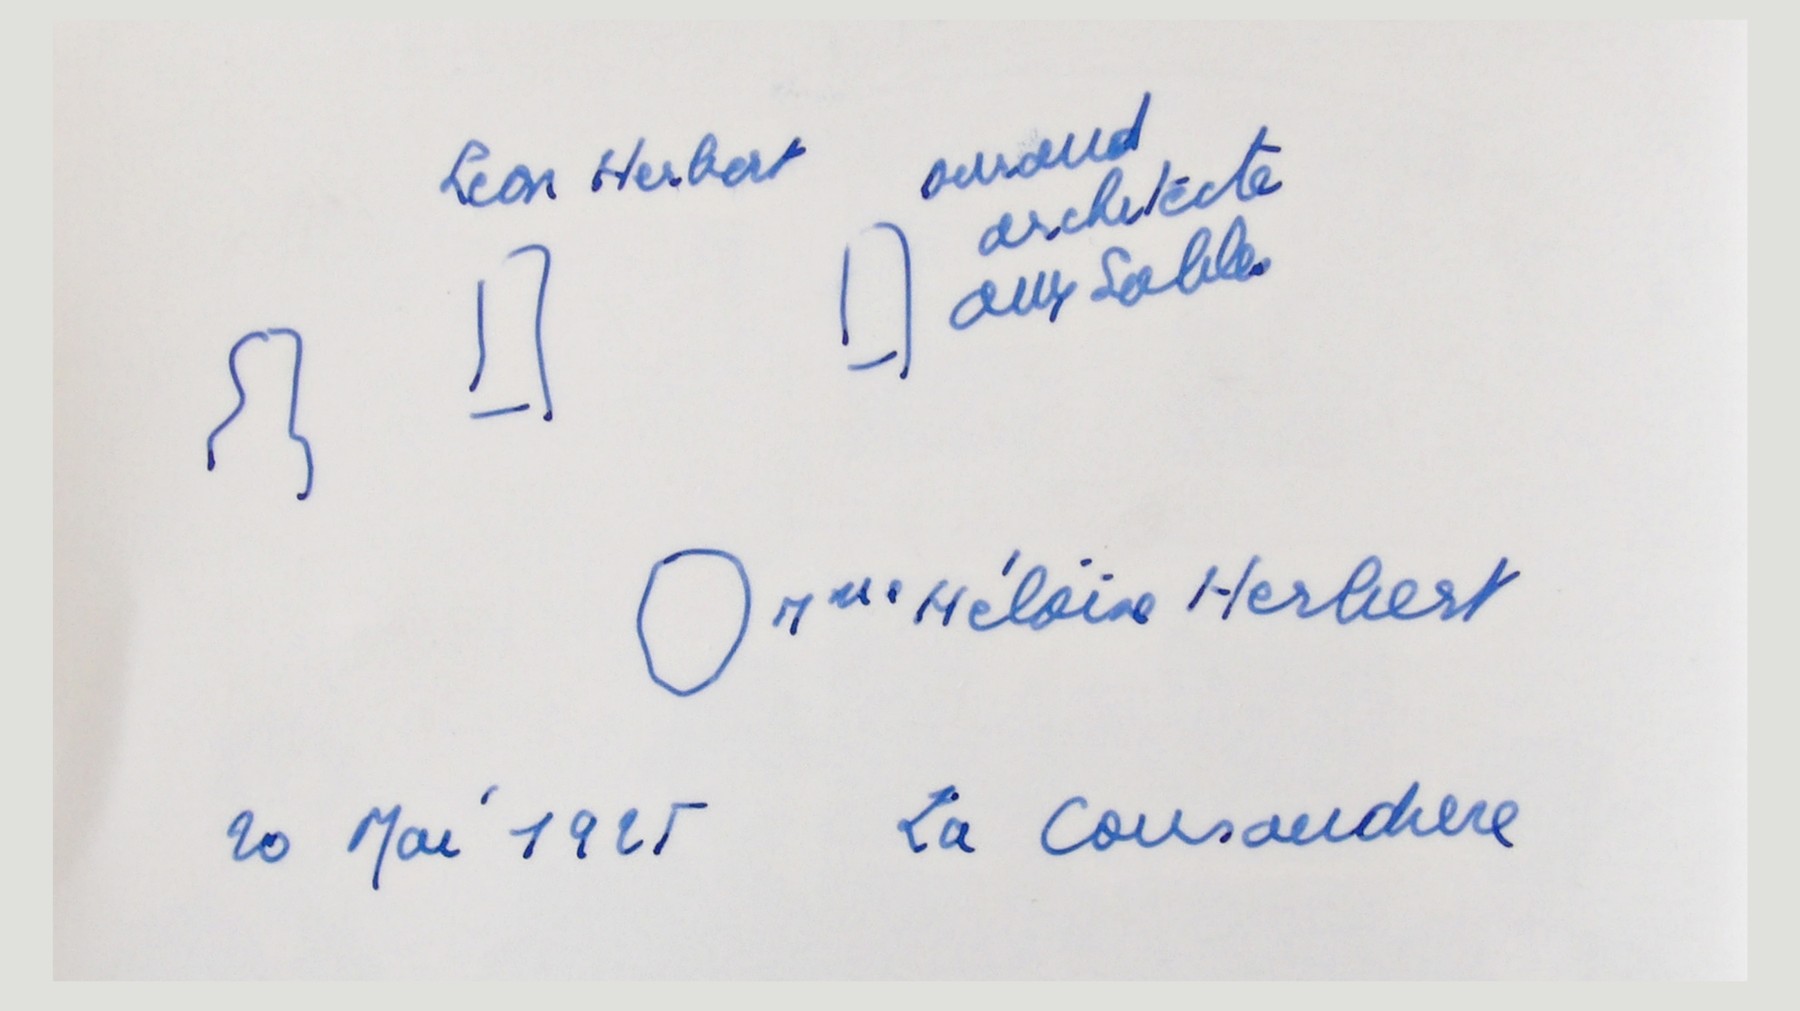 Léon Herbert
durand
architecte
aux Sables
Mme Héloïse Herbert
20 Mai 1925 La